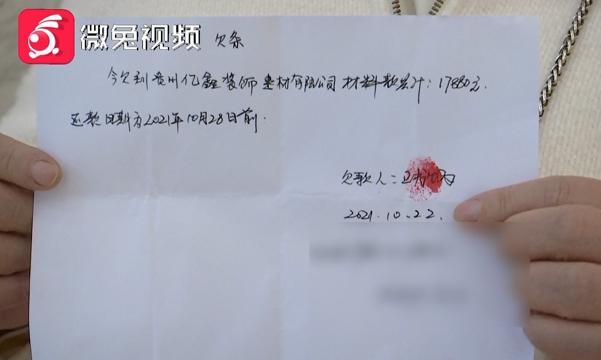 微兔视频
欠条
今欠到贵州亿鑫装饰建材有限公司材料款共计：17880元.
还款日期为2021年10月28日前.
欠款人：卫
2021.10.22.